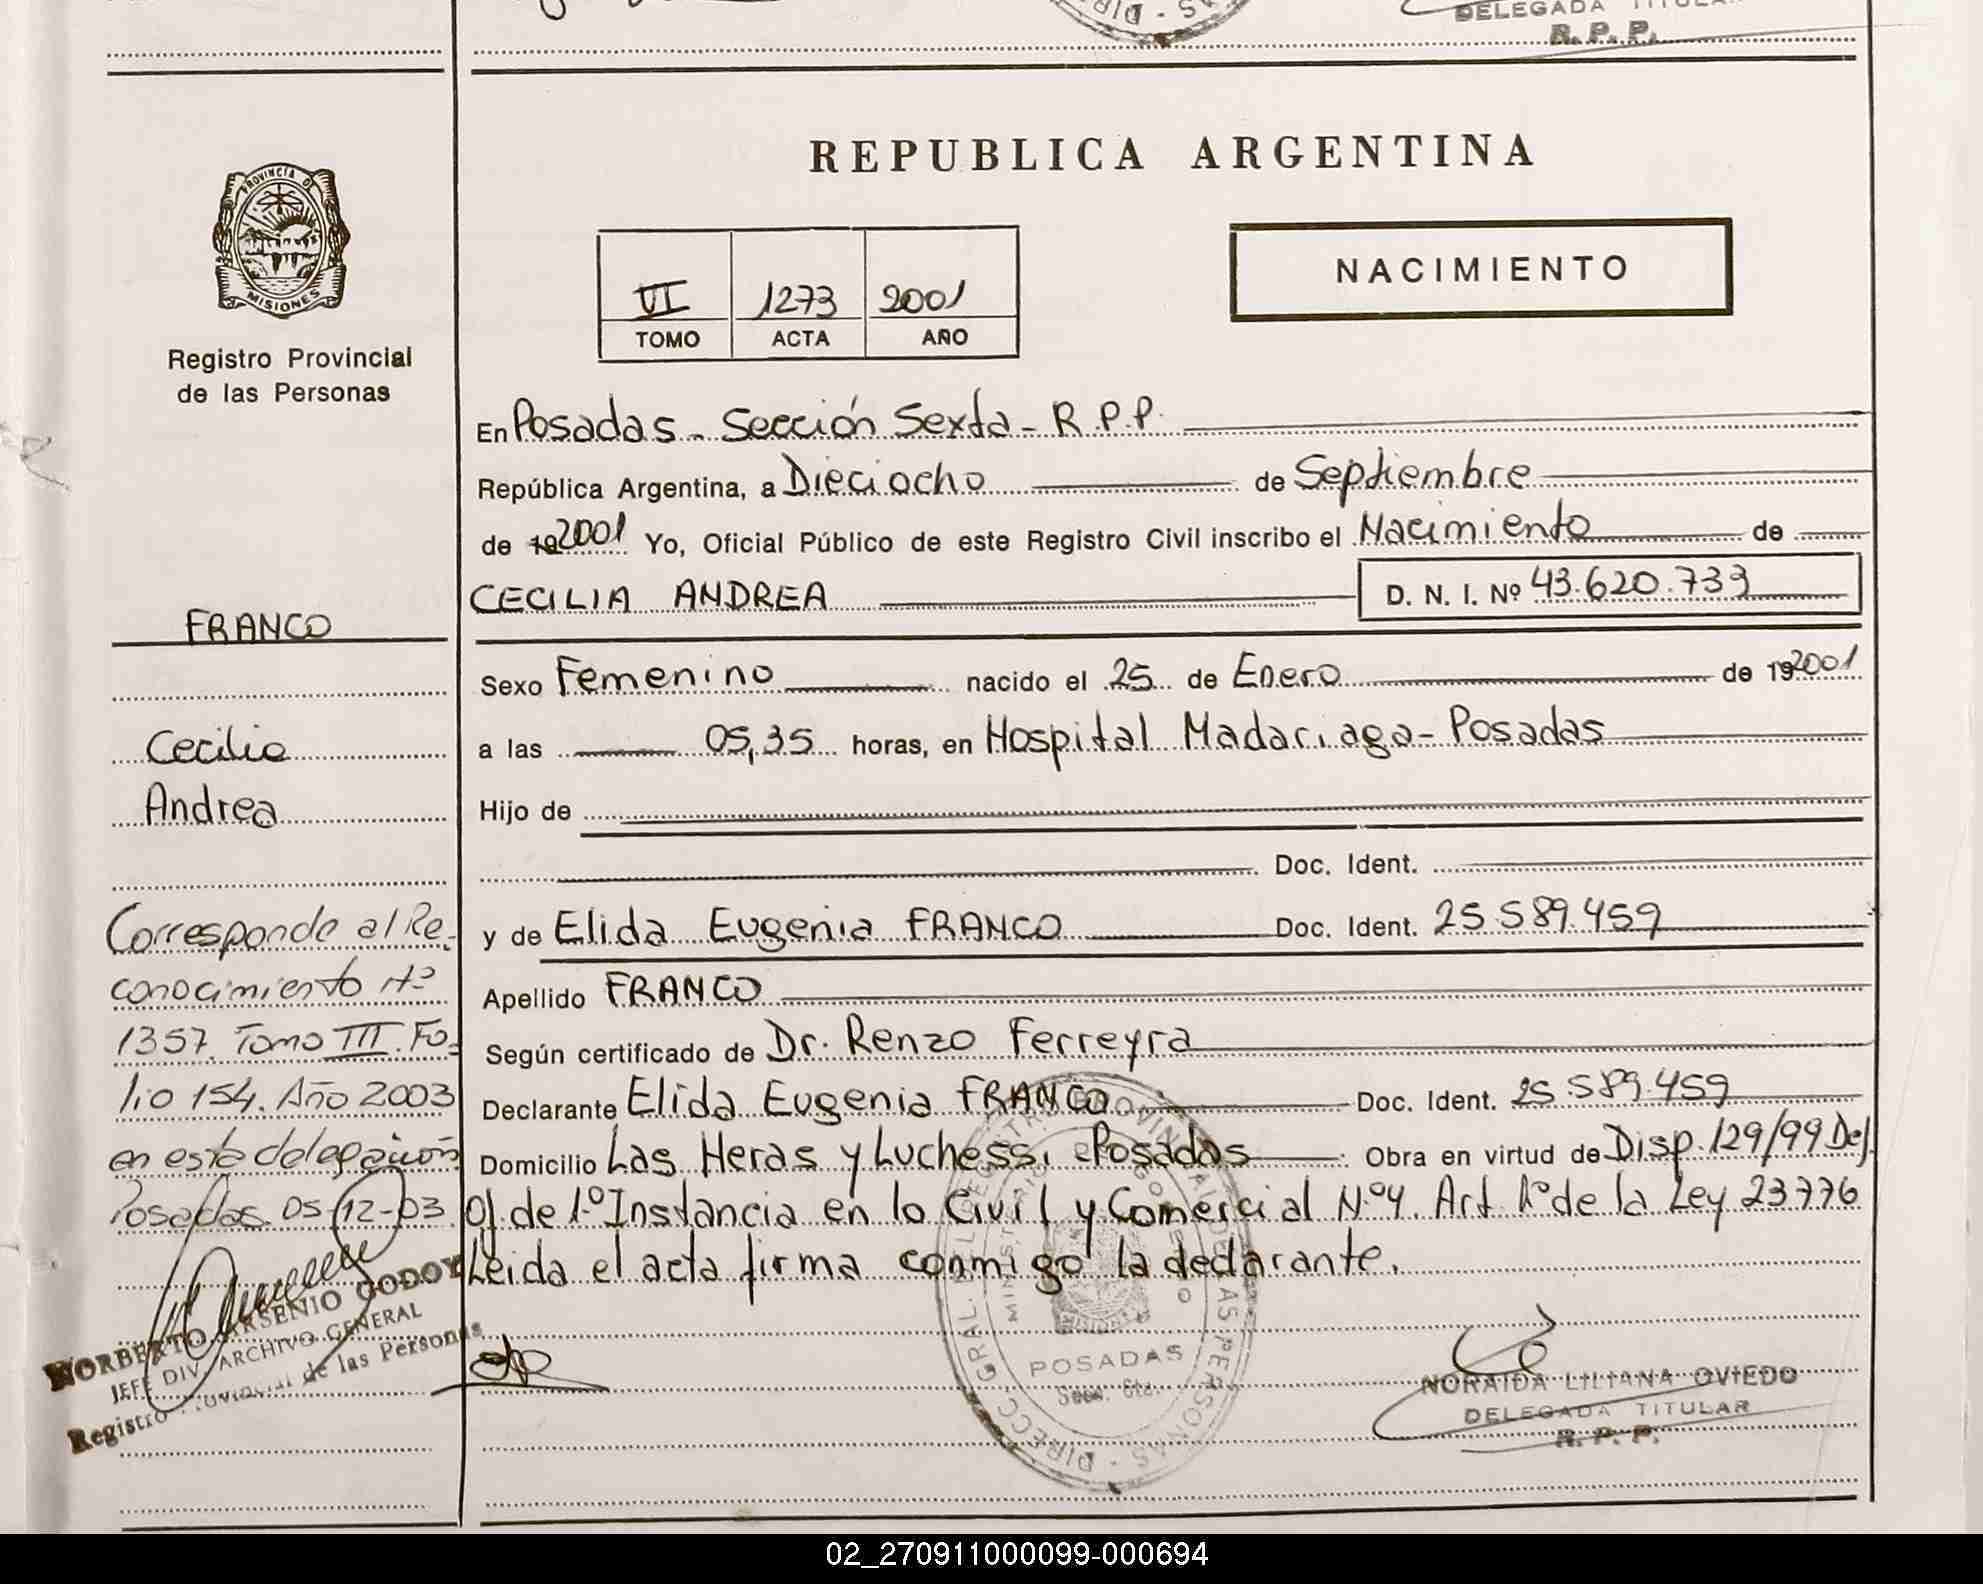 DELEGADA TITULAR
R. P. P.
REPUBLICA ARGENTINA
PROVINCIA DE
MISIONES
Registro Provincial
de las Personas
NACIMIENTO
VI 1273 2001
TOMO ACTA AÑO
En Posadas - Sección Sexta - R.P.P.
República Argentina, a Dieciocho de Septiembre
de 19 2001 Yo, Oficial Público de este Registro Civil inscribo el Nacimiento de
CECILIA ANDREA D. N. I. Nº 43.620.733
FRANCO
Sexo Femenino nacido el 25 de Enero de 19 2001
Cecilia
a las 05,35 horas, en Hospital Madariaga - Posadas
Andrea
Hijo de
Doc. Ident.
y de Elida Eugenia FRANCO Doc. Ident. 25.589.459
Apellido FRANCO
Según certificado de Dr. Renzo Ferreyra
Declarante Elida Eugenia FRANCO Doc. Ident. 25.589.459
Domicilio Las Heras y Luchessi Posadas Obra en virtud de Disp. 129/99 Del
01 de 1º Instancia en lo Civil y Comercial Nº4. Art 1º de la Ley 23776
Leida el acta firma conmigo la declarante.
Corresponde al Re-
conocimiento Nº
1357. Tomo III. Fo-
lio 154. Año 2003
en esta delegación
Posadas. 05-12-03
NORBERTO ARSENIO GODOY
JEFE DIV. ARCHIVO GENERAL
Registro Provincial de las Personas
POSADAS
Secc. 6ta.
NORAIDA LILIANA OVIEDO
DELEGADA TITULAR
R. P. P.
02_270911000099-000694